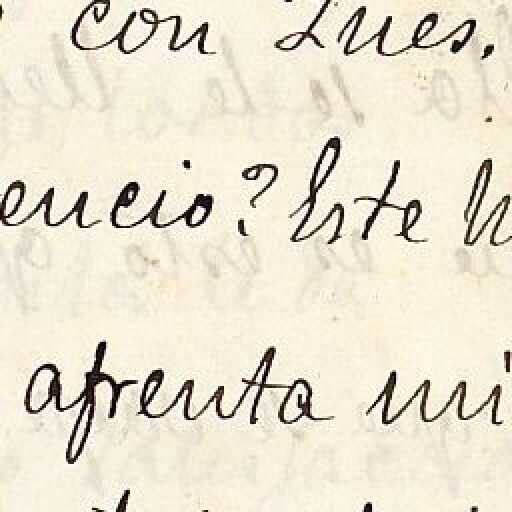 con Ines.
encio? Este h
afrenta mi